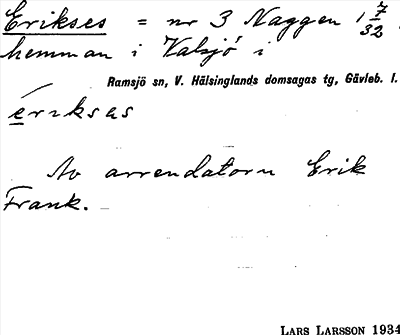 Erikses = nr 3 Naggen 1 7/32
hemman i Valsjö i
Ramsjö sn, V. Hälsinglands domsagas tg, Gävleb. l.
ériksas
Av arrendatorn Erik
Frank.
LARS LARSSON 1934